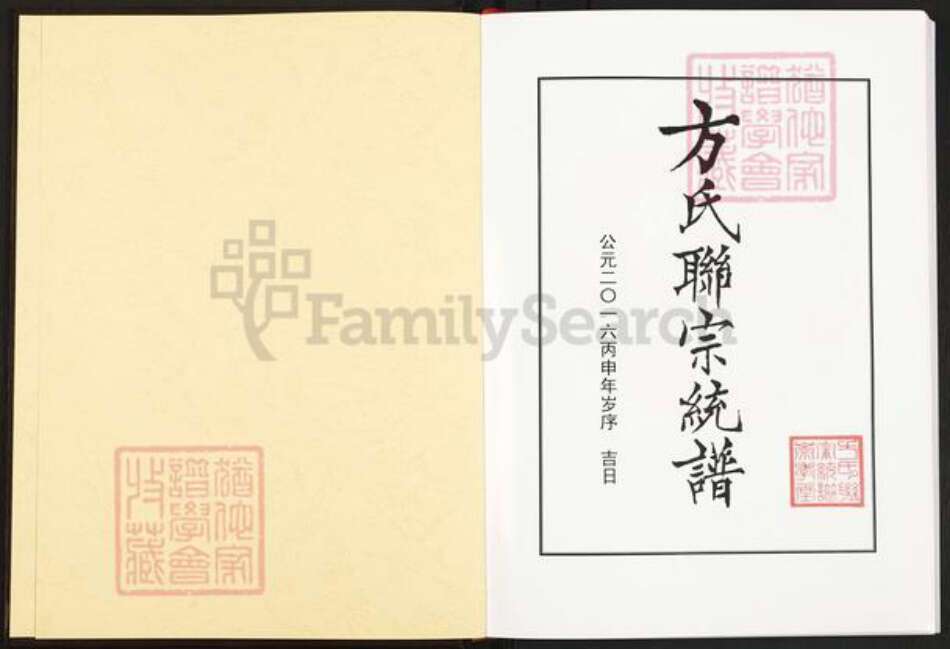 猶他家
譜學會
收藏
方氏聯宗統譜
公元二〇一六丙申年岁序 吉日
猶他家
譜學會
收藏
FamilySearch